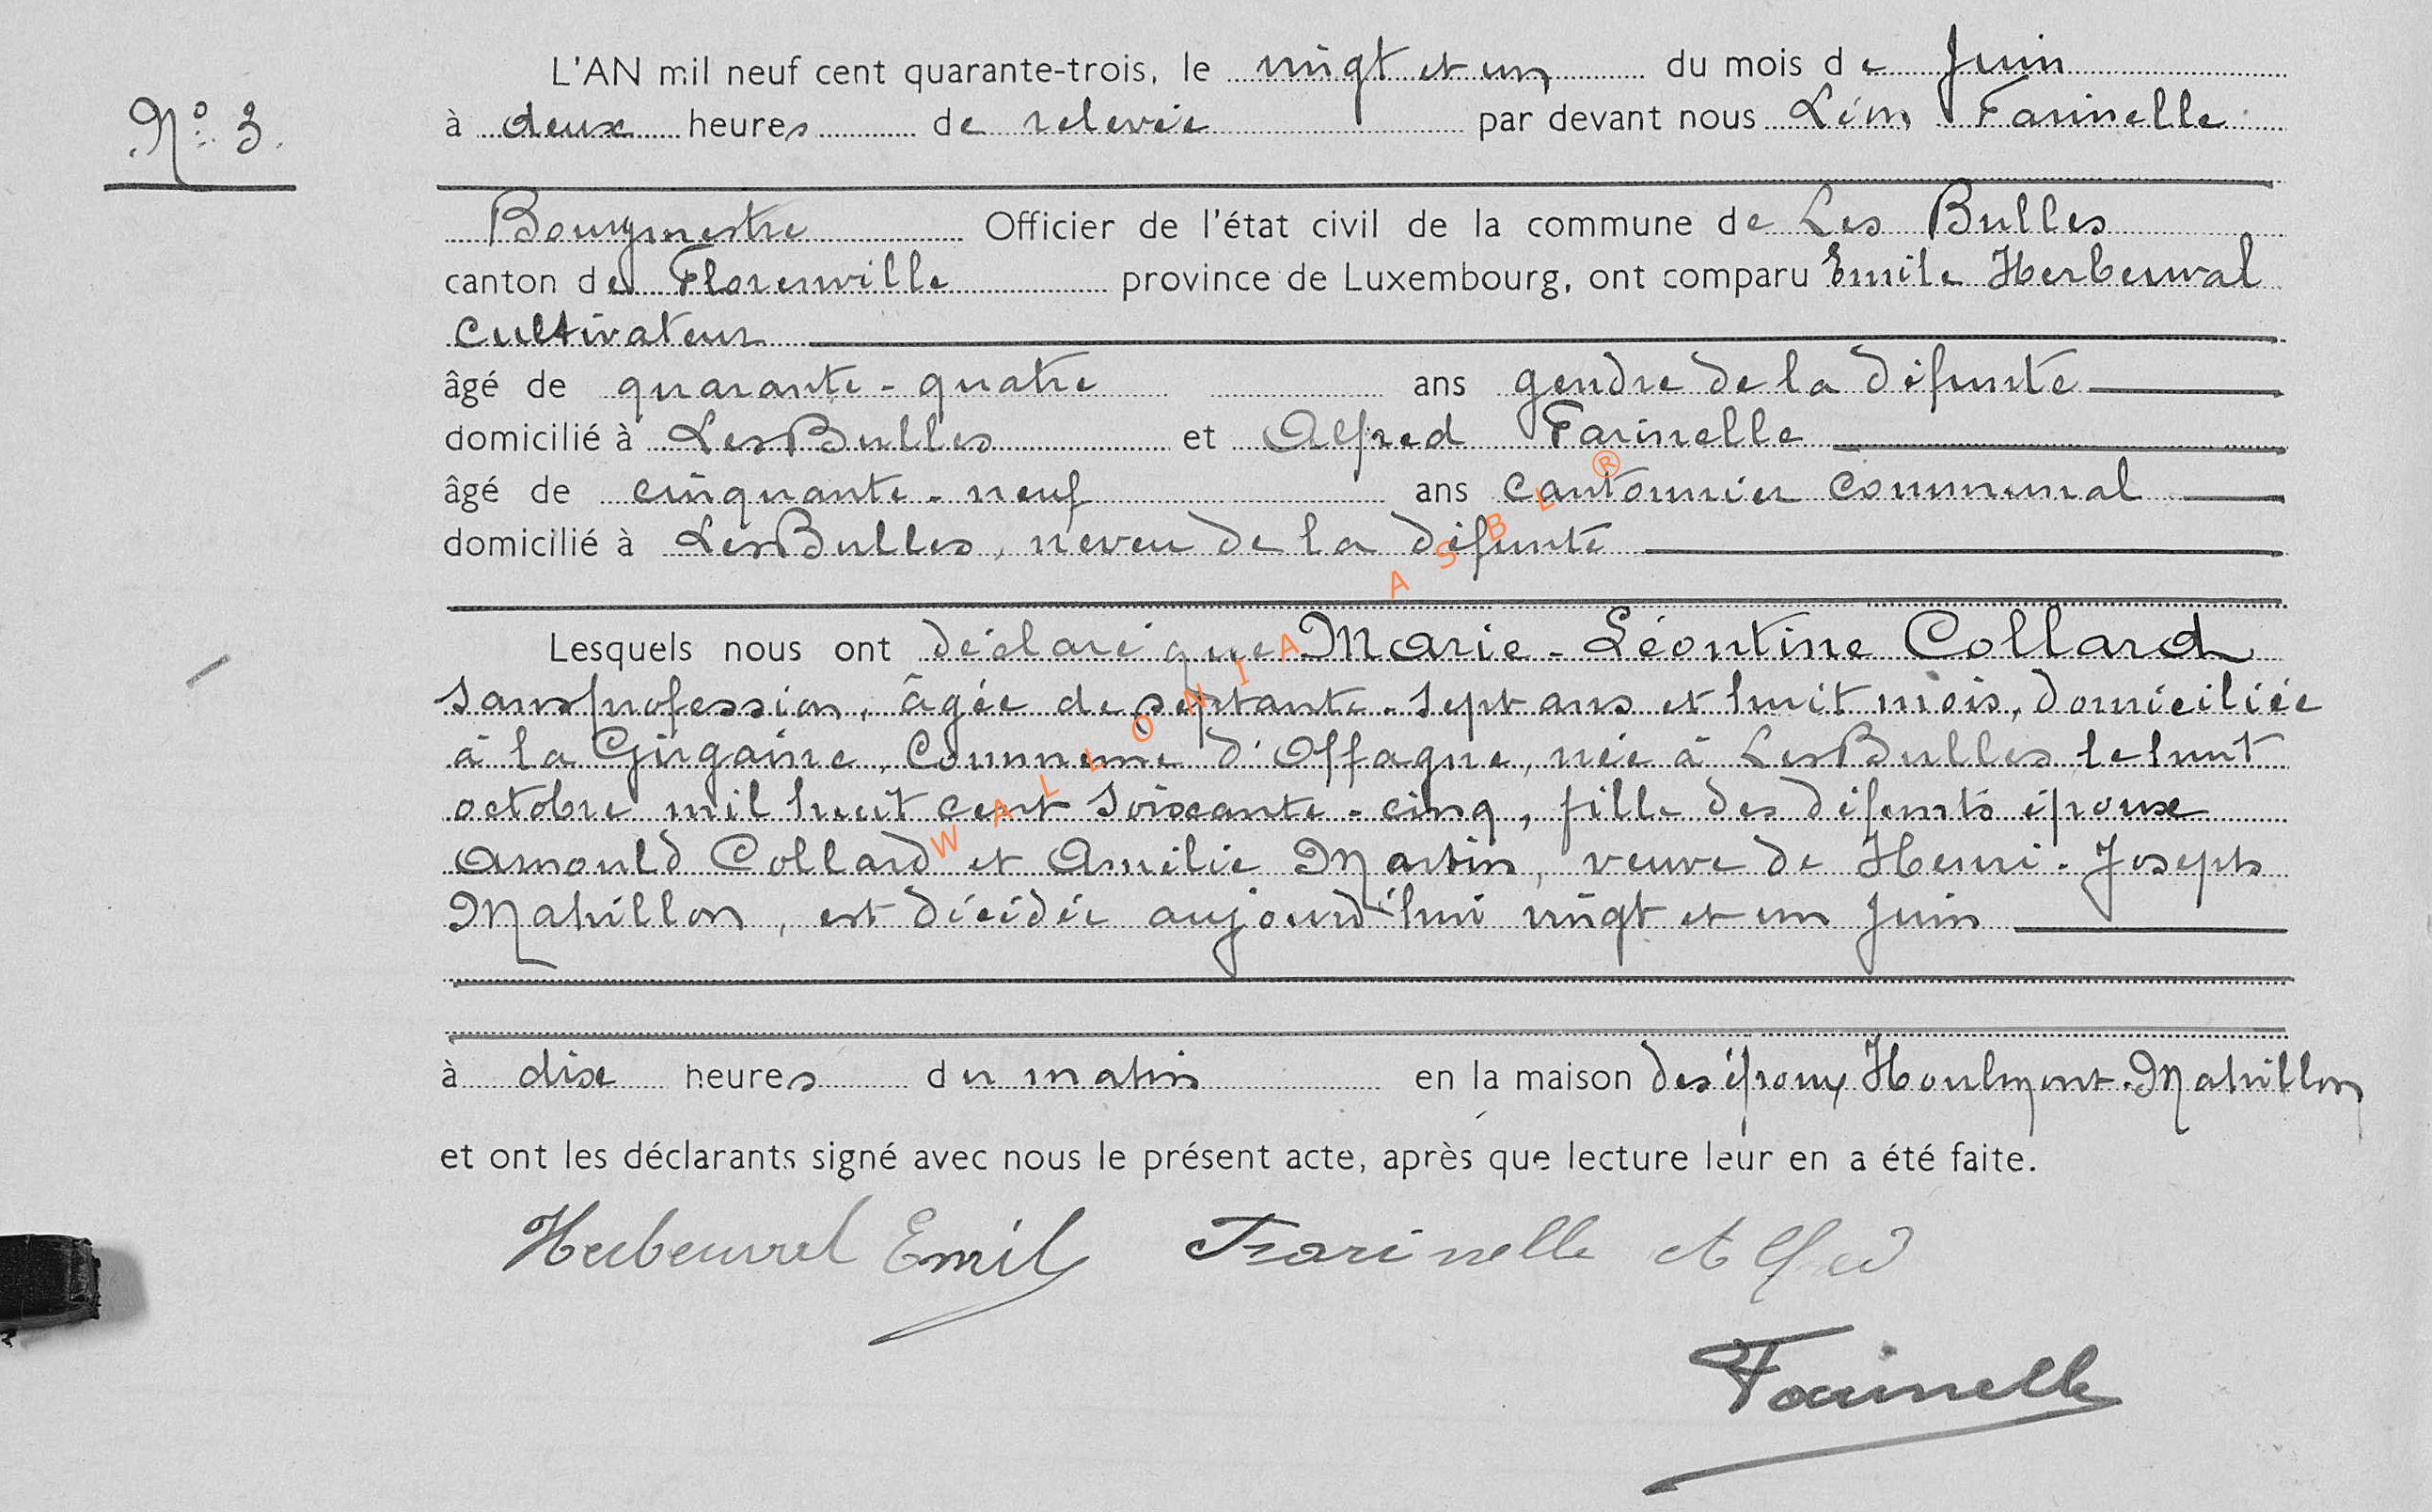 L'AN mil neuf cent quarante-trois, le vingt et un du mois de Juin
N° 3.
à deux heures de relevée par devant nous Léon Farinelle
Bourgmestre Officier de l'état civil de la commune de Les Bulles
canton de Florenville province de Luxembourg, ont comparu Emile Herbeuval
cultivateur
âgé de quarante-quatre ans gendre de la défunte
domicilié à Les Bulles et Alfred Farinelle
âgé de cinquante-neuf ans cantonnier communal
domicilié à Les Bulles, neveu de la défunte
Lesquels nous ont déclaré que Marie-Léontine Collard
sans profession, âgée de septante-sept ans et huit mois, domiciliée
à la Girgaine, Commune d'Offagne, née à Les Bulles le huit
octobre mil huit cent soixante-cinq, fille des défunts époux
Arnould Collard et Amélie Martin, veuve de Henri-Joseph
Mahillon, est décédée aujourd'hui vingt et un Juin
à dix heures du matin en la maison des époux Houlmont-Mahillon
et ont les déclarants signé avec nous le présent acte, après que lecture leur en a été faite.
Herbeuval Emile Farinelle Alfred
Farinelle
WALLONIA ASBL ®